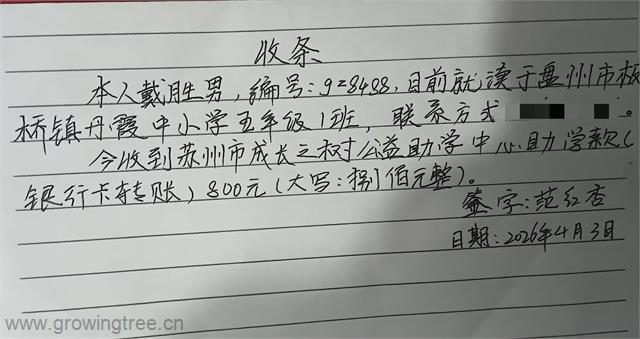 收条
本人戴胜男,编号:928488,目前就读于盘州市板
桥镇丹霞中小学五年级1班,联系方式
今收到苏州市成长之树公益助学中心助学款(
银行卡转账)800元(大写:捌佰元整)。
签字:范红杏
日期:2026年4月3日
www.growingtree.cn